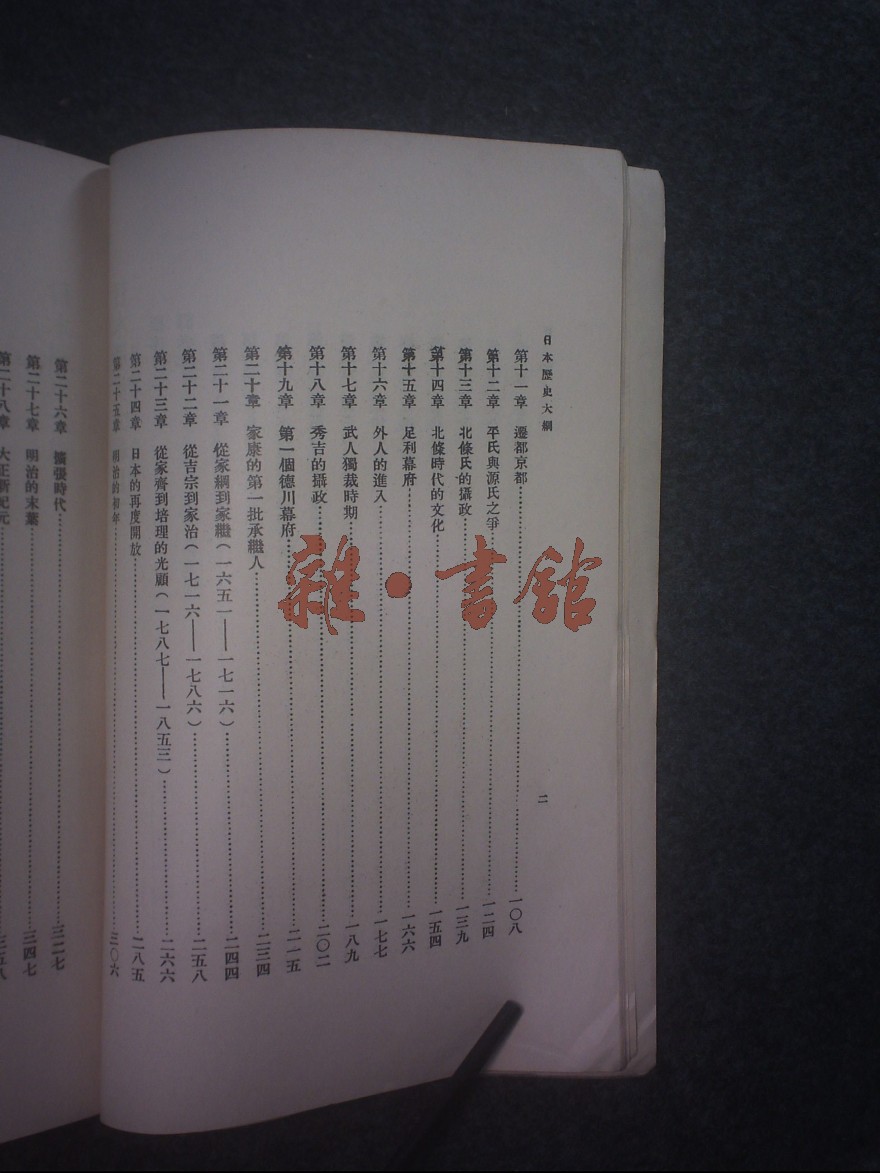 日本歷史大綱
二
第十一章 遷都京都 一〇八
第十二章 平氏與源氏之爭 一二四
第十三章 北條氏的攝政 一三九
第十四章 北條時代的文化 一五四
第十五章 足利幕府 一六六
第十六章 外人的進入 一七七
第十七章 武人獨裁時期 一八九
第十八章 秀吉的攝政 二〇二
第十九章 第一個德川幕府 二一五
第二十章 家康的第一批承繼人 二三四
第二十一章 從家綱到家繼(一六五一——一七一六) 二四四
第二十二章 從吉宗到家治(一七一六——一七八六) 二五八
第二十三章 從家齊到培理的光顧(一七八七——一八五三) 二六六
第二十四章 日本的再度開放 二八五
第二十五章 明治的初年 三〇六
第二十六章 擴張時代 三二七
第二十七章 明治的末葉 三四七
第二十八章 大正新紀元 三五八
雜·書館